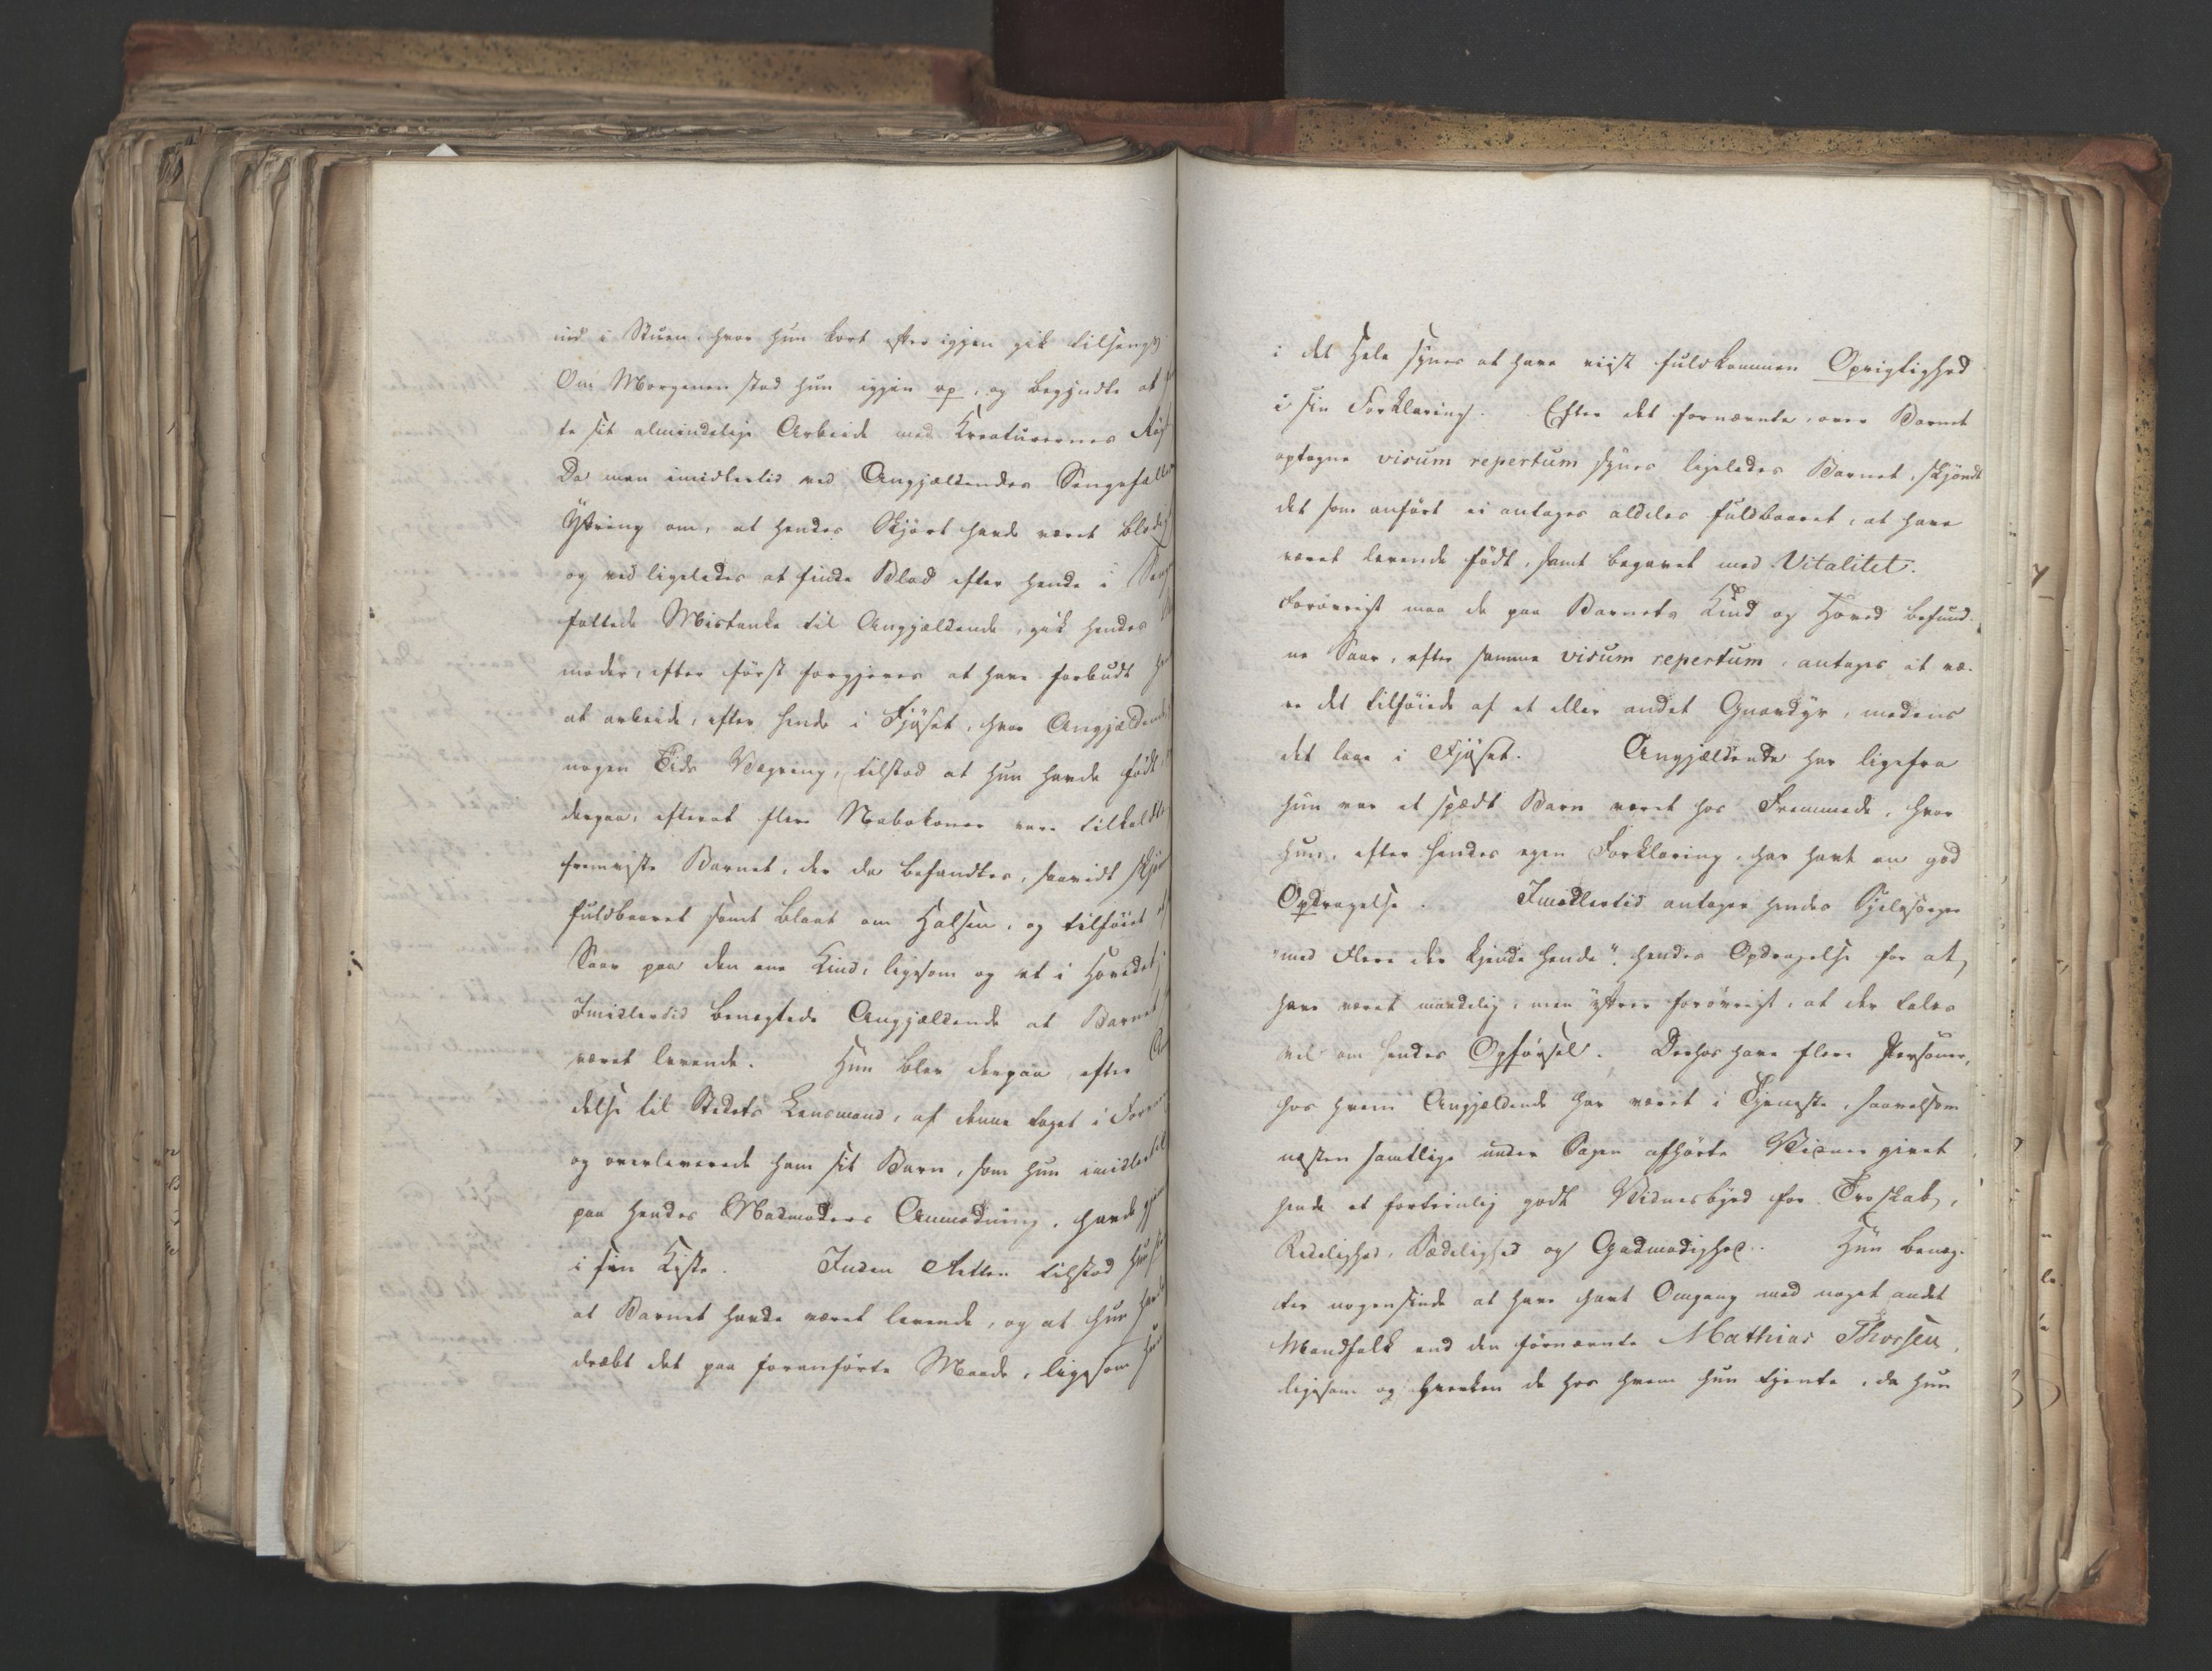 ind i Stuen, hvor hun kort efter igjen gik tilsengs
Om Morgenen stod hun igjen op, og begyndte at
te sit almindelige Arbeide med Kreaturernes Røg
Da man imidlertid ved Angjældendes Sengefælles
Yttring om, at hendes Skjørt havde været blodigt
og ved ligeledes at finde Blod efter hende i Sengen
fattede Mistanke til Angjældende, gik hendes
moder, efter først forgjeves at have forbudt hende
at arbeide, efter hende i Fjøset, hvor Angjældende
nogen Tids Vægring, tilstod at hun havde født
derpaa, efterat flere Nabokoner vare tilkaldte
fremviste Barnet, der da befandtes, saavidt skjøn
fuldbaaret samt blaat om Halsen, og tilføiet et
Saar paa den ene Kind, ligesom og et i Hovedet,
Imidlertid benegtede Angjældende at Barnet
været levende. Hun blev derpaa, efter An
delse til Stedets Lensmand, af denne taget i Forva
og overleverede ham sit Barn, som hun imidlertid
paa hendes Madmoders Anmodning, havde gjemt
i sin Kiste. Inden Retten tilstod hun
at Barnet havde været levende, og at hun havde
dræbt det paa foranførte Maade, ligesom hun
i det Hele synes at have viist fuldkommen Oprigtighed
i sin Forklaring. Efter det fornævnte, over Barnet
optagne visum repertum synes ligeledes Barnet, skjøndt
det som anført ei antages aldeles fuldbaaret, at have
været levende født, samt begavet med Vitalitet.
Forøvrigt maa de paa Barnets Kind og Hoved befund-
ne Saar, efter samme visum repertum, antages at væ-
re det tilføiede af et eller andet Gnavdyr, medens
det laae i Fjøset. Angjældende har ligefra
hun var et spædt Barn været hos Fremmede, hvor
hun, efter hendes egen Forklaring, har havt en god
Opdragelse. Imidlertid antager hendes Sjelesørger
"med Flere der kjende hende" hendes Opdragelse for at
have været maadelig, men yttrer forøvrigt, at der tales
vel om hendes Opførsel. Derhos have flere Personer,
hos hvem Angjældende har været i Tjeneste, saavelsom
næsten samtlige under Sagen afhørte Vidner givet
hende et fortrinlig godt Vidnesbyrd for Troskab,
Redelighed, Sædelighed og Godmodighed. Hun benæg-
ter nogensinde at have havt Omgang med noget andet
Mandfolk end den fornævnte Mathias Thorsen,
ligesom og hverken de hos hvem hun tjente, da hun